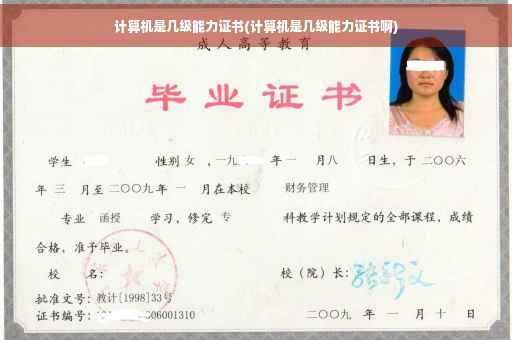 计算机是几级能力证书(计算机是几级能力证书啊)
成人高等教育
毕业证书
学生 性别 女 ，一九 年一 月八 日生，于二〇〇六
年 三 月至二〇〇九年 一 月在本校 财务管理
专业 函授 学习，修完 专 科教学计划规定的全部课程，成绩
合格，准予毕业。
校 名： 校（院）长：
批准文号：教计[1998]33号
证书编号： 06001310 二〇〇九 年 一 月 十 日